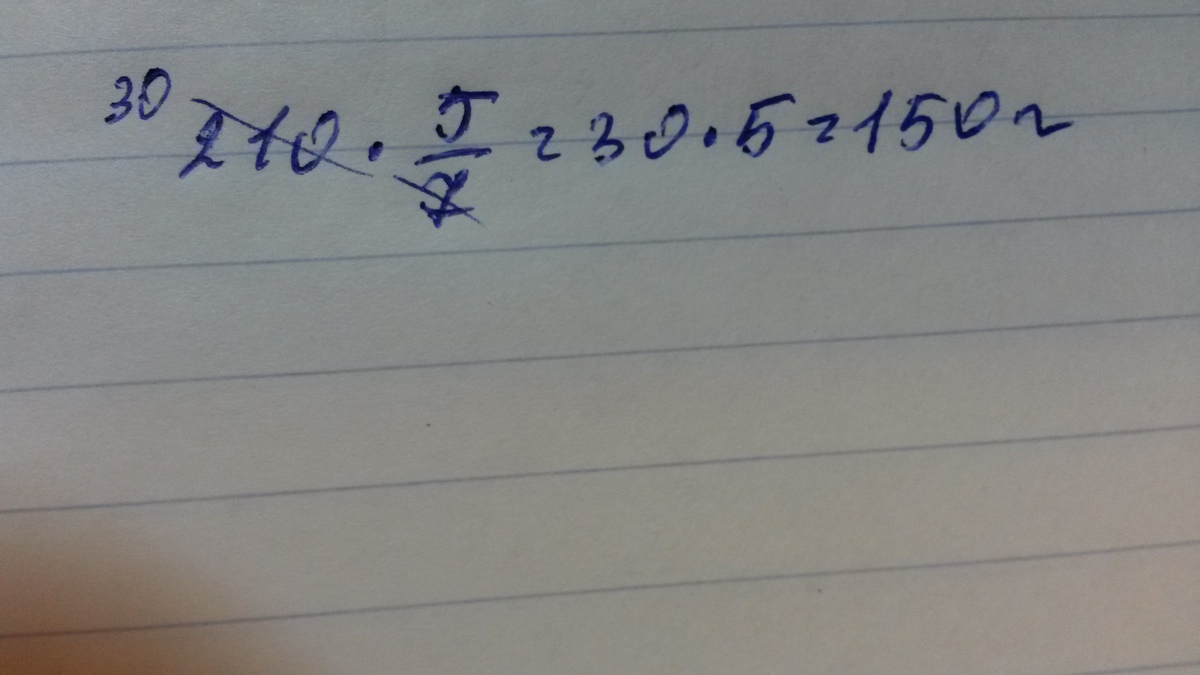 30 210 · 5/7 = 30 · 5 = 150 г